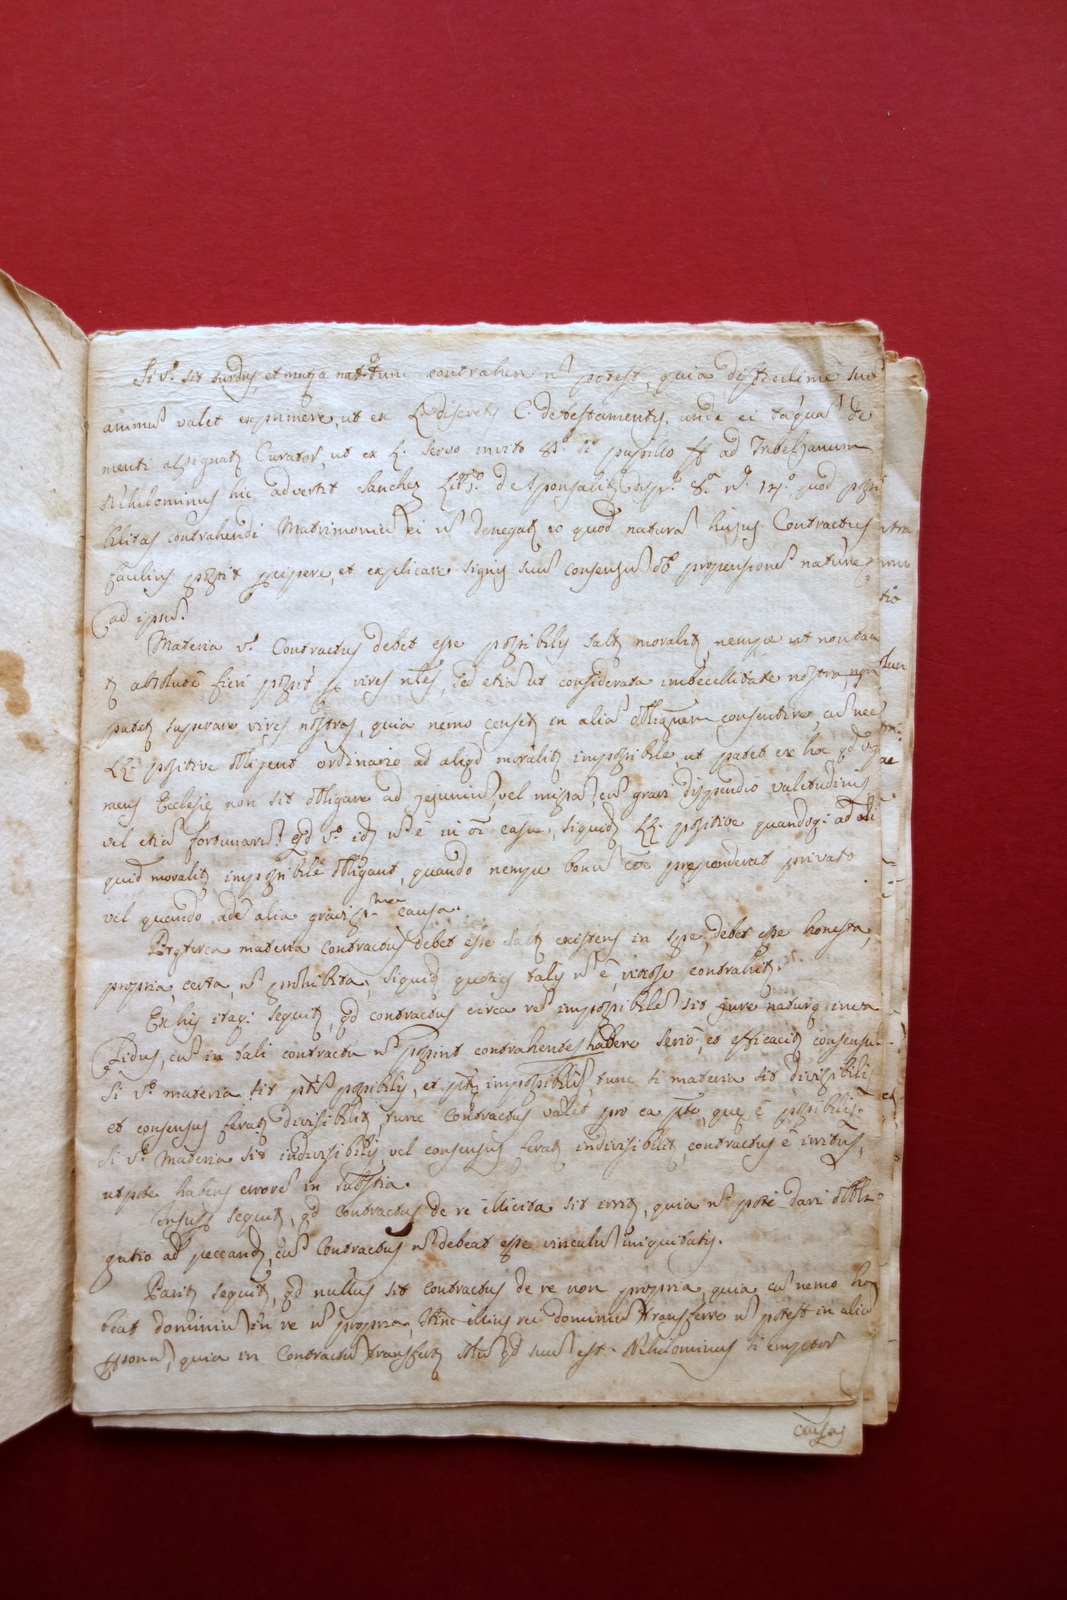 Si v.o sit surdus, et mutus natus tunc contrahere n.o potest, quia difficilime suu
animu valet exprimere, ut ex L. discretis C. de testamentis, unde ei taqua de
menti assignat Curator, ut ex L. servo invito §. si pupillo ff ad Trebellianum
Nihilominus hic advertit Sanchez de Sponsalib disp. 8.a n.o quod possi
bilitas contrahendi Matrimoniu ei n.o denegat eo quod natura huius Contractus
facilius possit pcipere, et explicare signis suu consensu ob propensione nature
ad ipsu.
Materia v.o Contractus debet esse possibilis salt moralit, nempe ut non tan
t absolute fieri possit p vires nres, sed etia ut considerata imbecillitate nostra, non
putet superare vires nostras, quia nemo censet in alia obligatione consentire, cu nec
LL. positive obligent ordinario ad aliqd moralit impossibile ut patet ex hoc qd
mens Ecclesie non sit obligare ad jejuniu, vel missa, cu gravi dispendio valitudinis
vel etia fortunaru? qd v.o id n.o e in oi casu, siquid LL. positive quandoq: ad ali
quid moralit impossibile obligant, quando nempe bonu coe preponderat privato
vel quando ade alia graviss.ma causa.
Preterea materia Contractus debet esse salt existens in spe, debet esse honesta,
propria, certa, n.o prohibita, siquid quoties talis n.o e, vitiose contrahit.
Ex his itaq: sequit, qd contractus circa re impossibile sit jure nature inva
lidus, cu in tali contractu n.o possint contrahentes habere serio, et efficacit consensu
Si v.o materia sit ptu possibilis, et pti impossibilis, tunc si materia sit divisibilis
et consensus ferat divisibilit, tunc Contractus valet pro ea pte, que e possibilis.
Si v.o Materia sit indivisibilis, vel consensus ferat indivisibilit, contractus e irritus,
utpote habens errore in substia.
sequit, qd contractus de re illicita sit irrit, quia n.o pote dari obli
gatio ad peccand, cu Contractus n.o debeat esse vinculu iniquitatis.
Parit sequit, qd nullus sit contractus de re non propria, quia cu nemo ha
beat dominiu in re n.o propria, hinc illius rei dominiu transferre n.o potest in alia
psona, quia in Contractu transfert qd suu est. Nihilominus si emptor
causas